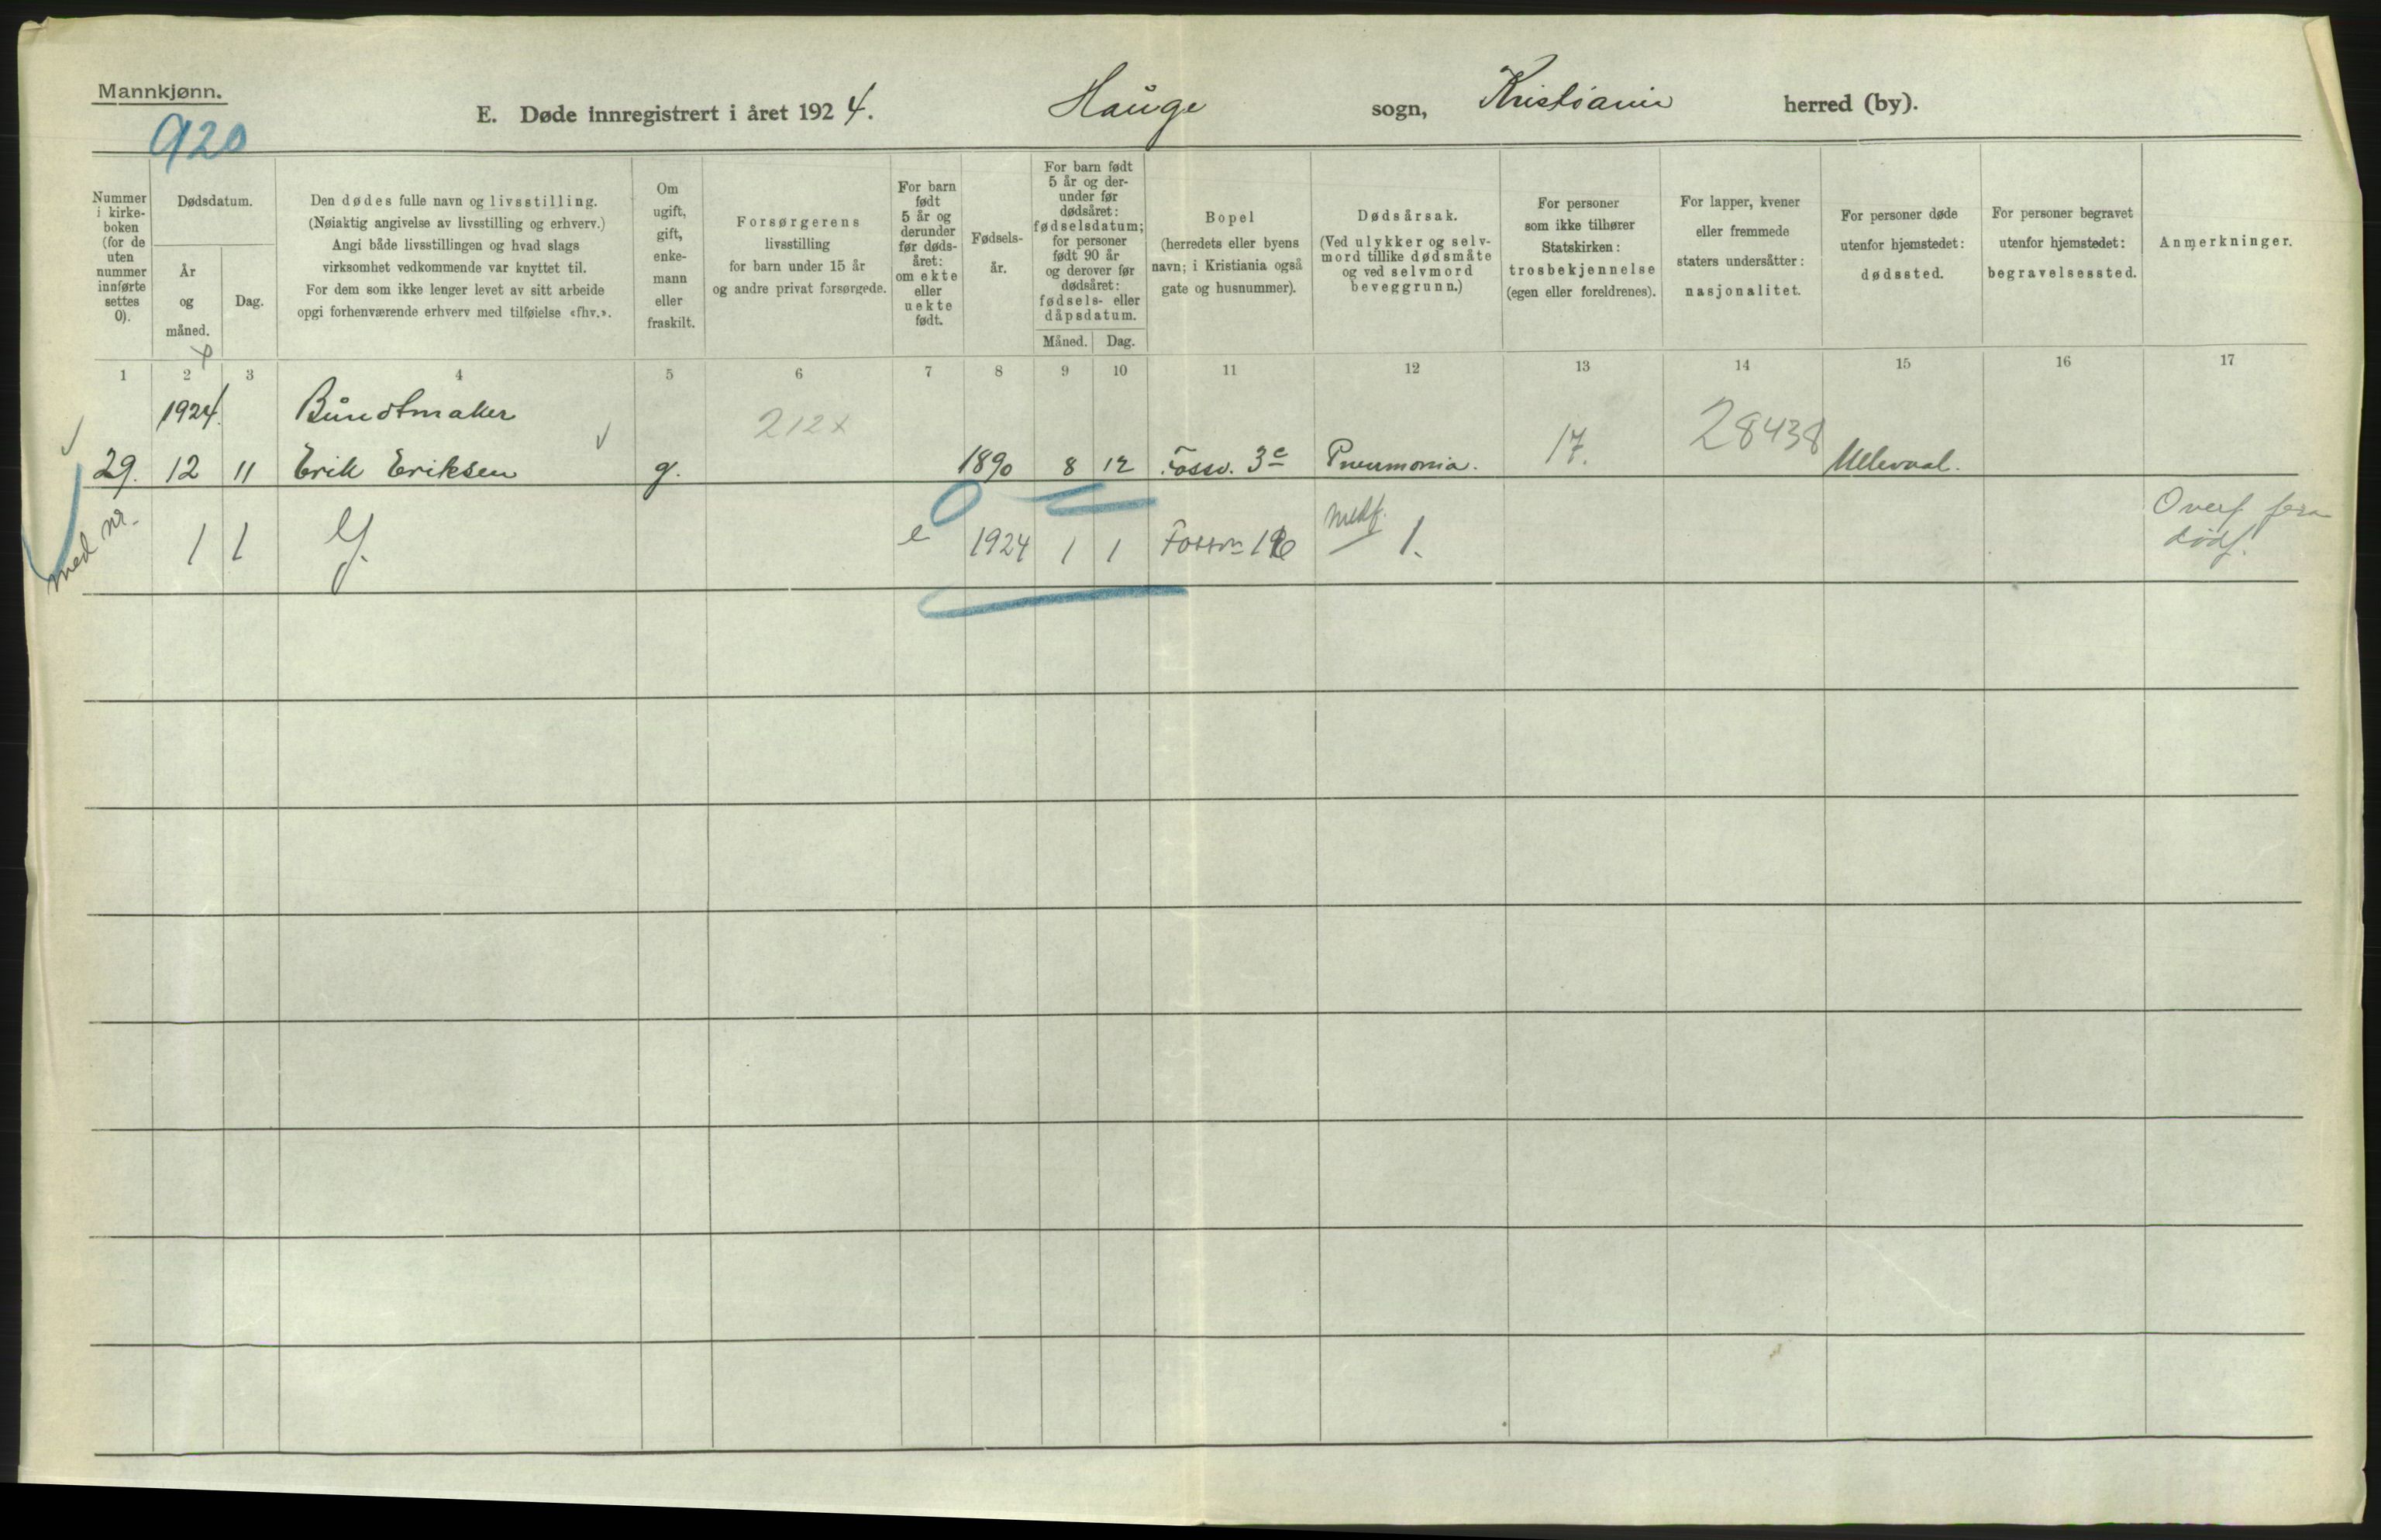 Mannkjønn.
920
E. Døde innregistrert i året 1924. Hauge sogn, Kristiania herred (by).
Nummer i kirke-boken (for de uten nummer innførte settes 0).
Dødsdatum.
År og måned.
Dag.
Den dødes fulle navn og livsstilling.
(Nøiaktig angivelse av livsstilling og erhverv.)
Angi både livsstillingen og hvad slags
virksomhet vedkommende var knyttet til.
For dem som ikke lenger levet av sitt arbeide
opgi forhenværende erhverv med tilføielse «fhv.».
Om ugift, gift, enke-mann eller fraskilt.
Forsørgerens
livsstilling
for barn under 15 år
og andre privat forsørgede.
For barn født 5 år og derunder før døds-året: om ekte eller uekte født.
Fødsels-år.
For barn født 5 år og der-under før dødsåret: fødselsdatum; for personer født 90 år og derover før dødsåret: fødsels- eller dåpsdatum.
Måned. Dag.
Bopel
(herredets eller byens
navn; i Kristiania også
gate og husnummer).
Dødsårsak.
(Ved ulykker og selv-
mord tillike dødsmåte
og ved selvmord
beveggrunn.)
For personer
som ikke tilhører
Statskirken:
trosbekjennelse
(egen eller foreldrenes).
For lapper, kvener
eller fremmede
staters undersåtter:
nasjonalitet.
For personer døde
utenfor hjemstedet:
dødssted.
For personer begravet
utenfor hjemstedet:
begravelsessted.
Anmerkninger.
1 2 3 4 5 6 7 8 9 10 11 12 13 14 15 16 17
1924. Bundtmaker 212x 28438
29. 12 11 Erik Eriksen g. 1890 8 12 Fossv. 3c Pneumonia. 17. Ullevaal.
med nr. 1 1 G. e 1924 1 1 Fossvn medf. 1. Overf fra
dødf.